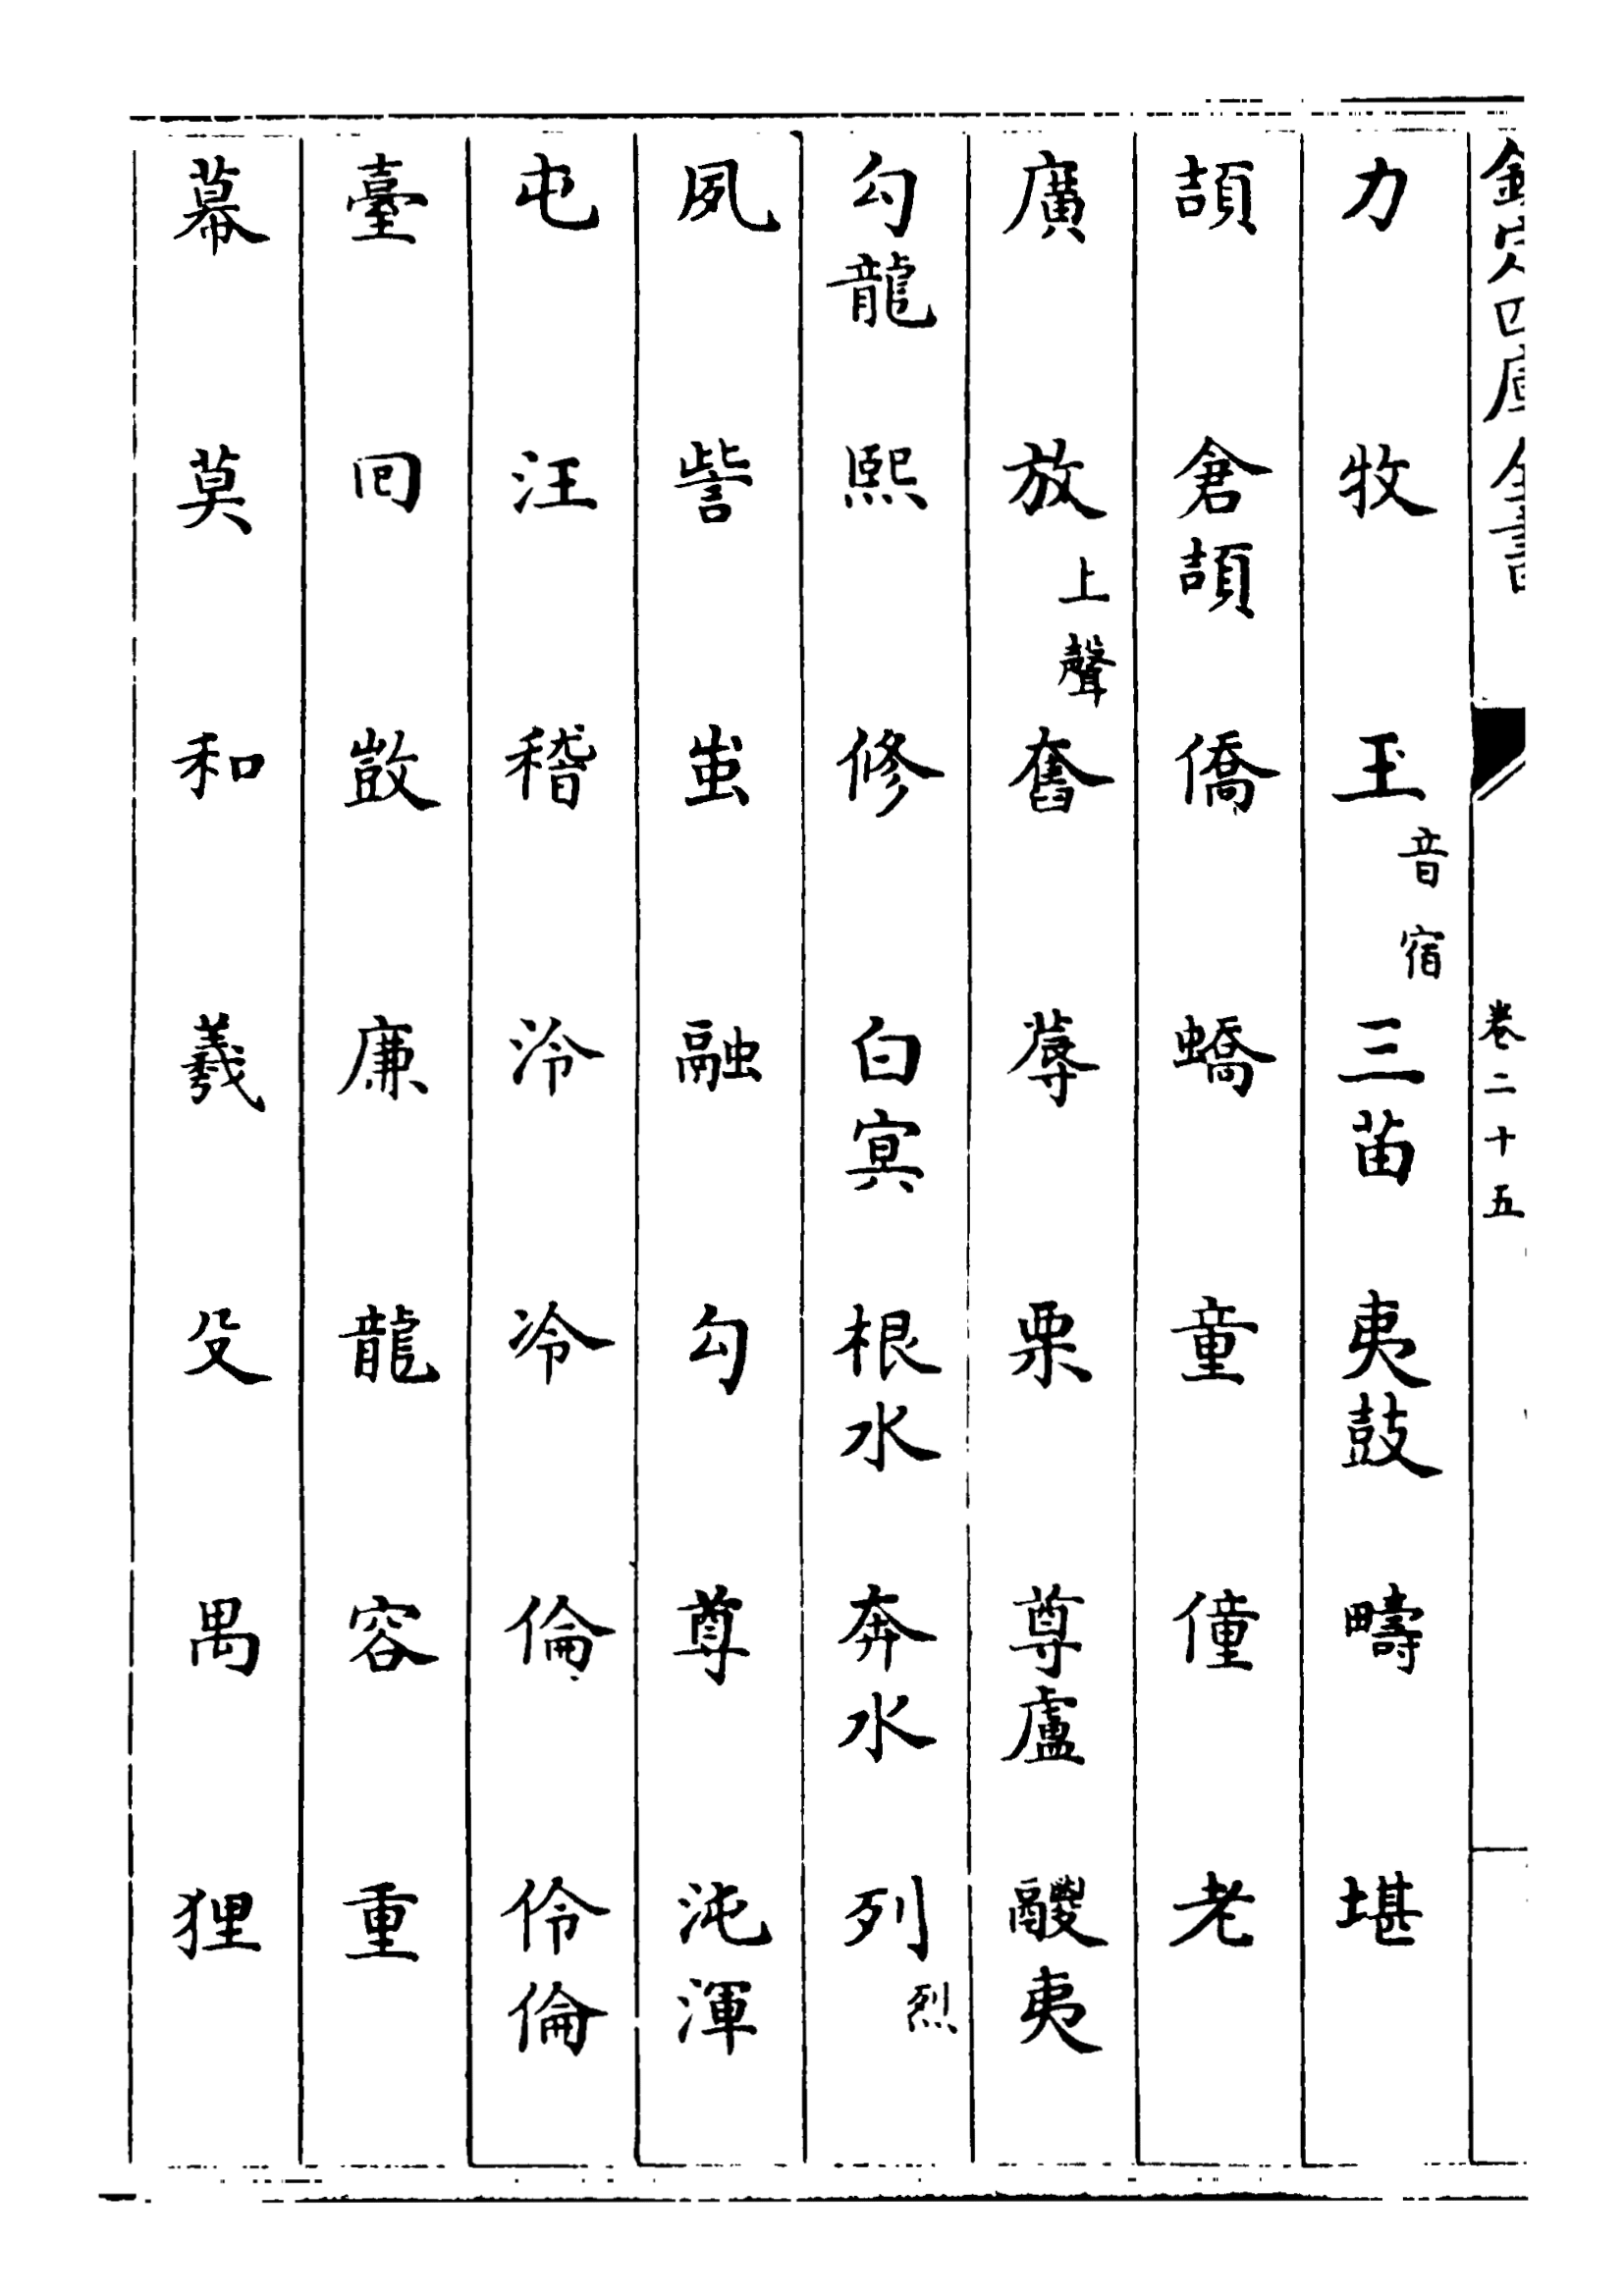 欽定四庫全書 卷二十五
力 牧 玊音宿 三苗 夷鼓 疇 堪
頡 倉頡 僑 蟜 童 僮 老
廣 放上聲 奮 蓐 栗 尊盧 鬷夷
勾龍 熙 修 白冥 根水 奔水 列烈
夙 訾 蚩 融 勾 尊 沌渾
屯 汪 稽 泠 冷 倫 伶倫
臺 回 敳 廉 龍 容 重
幕 莫 和 羲 殳 禺 狸